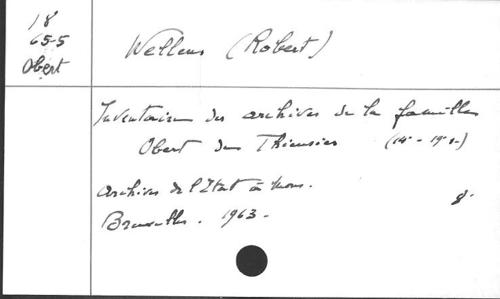 18
65-5
Obert
Wellens (Robert)
Inventaire des archives de la famille
Obert de Thieusies (14e - 19e s.)
Archives de l'Etat à Mons.
8°
Bruxelles. 1963.